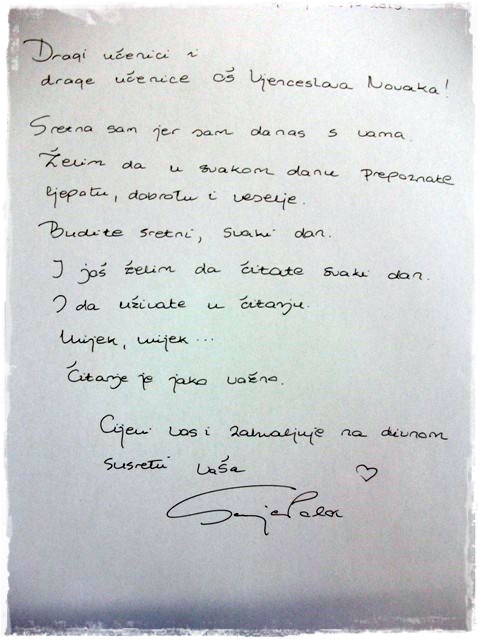 Dragi učenici i
drage učenice OŠ Vjenceslava Novaka!
Sretna sam jer sam danas s vama.
Želim da u svakom danu prepoznate
ljepotu, dobrotu i veselje.
Budite sretni, svaki dan.
I još želim da čitate svaki dan.
I da uživate u čitanju.
Uvijek, uvijek...
Čitanje je jako važno.
Cijeni vas i zahvaljuje na divnom
susretu Vaša
Sanja Polak